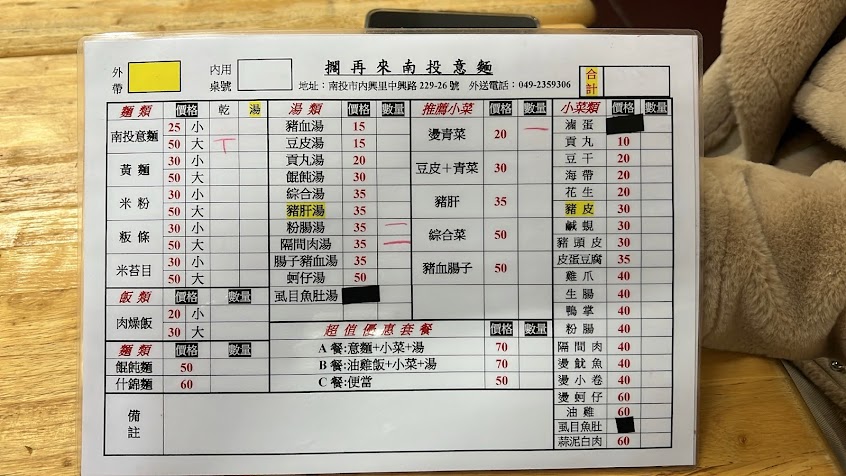 擱再來南投意麵
外帶
內用桌號
地址：南投市內興里中興路229-26號 外送電話：049-2359306
合計
麵類 價格 乾 湯
南投意麵 25 小
50 大 T
黃麵 30 小
50 大
米粉 30 小
50 大
粄條 30 小
50 大
米苔目 30 小
50 大
飯類 價格 數量
肉燥飯 20 小
30 大
麵類 價格 數量
餛飩麵 50
什錦麵 60
湯類 價格 數量
豬血湯 15
豆皮湯 15
貢丸湯 20
餛飩湯 30
綜合湯 35
豬肝湯 35
粉腸湯 35 一
隔間肉湯 35 一
腸子豬血湯 35
蚵仔湯 50
虱目魚肚湯
推薦小菜 價格 數量
燙青菜 20 一
豆皮＋青菜 30
豬肝 35
綜合菜 50
豬血腸子 50
超值優惠套餐 價格 數量
A 餐:意麵+小菜+湯 70
B 餐:油雞飯+小菜+湯 70
C 餐:便當 50
小菜類 價格 數量
滷蛋
貢丸 10
豆干 20
海帶 20
花生 20
豬皮 30
鹹蜆 30
豬頭皮 30
皮蛋豆腐 35
雞爪 40
生腸 40
鴨掌 40
粉腸 40
隔間肉 40
燙魷魚 40
燙小卷 40
燙蚵仔 60
油雞 60
虱目魚肚
蒜泥白肉 60
備註